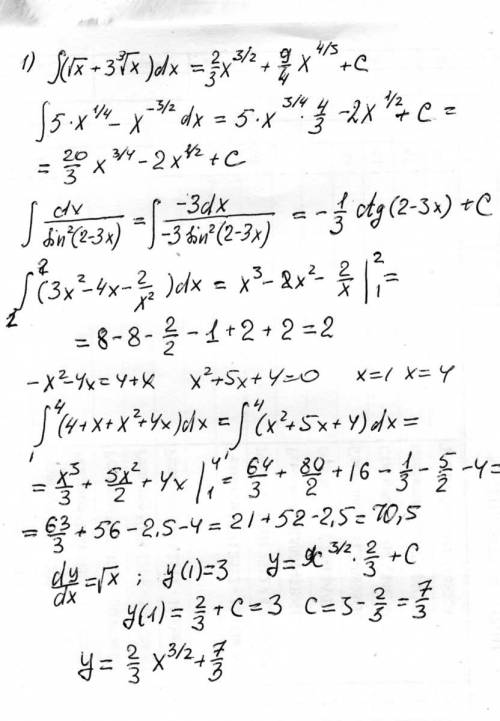 1) ∫(√x + 3∛x)dx = 2/3 x^3/2 + 9/4 x^4/3 + C
∫5·x^1/4 − x^−3/2 dx = 5·x^3/4 · 4/3 − 2x^1/2 + C =
= 20/3 x^3/4 − 2x^1/2 + C
∫ dx/sin²(2−3x) = ∫ −3dx/−3sin²(2−3x) = −1/3 ctg(2−3x) + C
∫(3x²−4x−2/x²)dx = x³−2x²−2/x |₁² =
= 8−8−2/2−1+2+2=2
−x²−4x=4+x x²+5x+4=0 x=1 x=4
∫₁⁴(4+x+x²+4x)dx = ∫₁⁴(x²+5x+4)dx =
= x³/3 + 5x²/2 + 4x |₁⁴ = 64/3 + 80/2 + 16 − 1/3 − 5/2 − 4 =
= 63/3 + 56 − 2,5 − 4 = 21 + 52 − 2,5 = 70,5
dy/dx = √x ; y(1)=3 y = x^3/2 · 2/3 + C
y(1) = 2/3 + C = 3 C = 3 − 2/3 = 7/3
y = 2/3 x^3/2 + 7/3